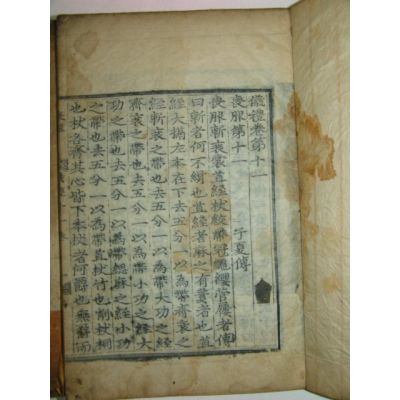 儀禮卷第十一
喪服第十一　子夏傳
喪服斬衰裳苴絰杖絞帶冠繩纓菅屨者傳
曰斬者何不緝也苴絰者麻之有蕡者也苴
絰大搹左本在下去五分一以為帶齊衰之
絰斬衰之帶也去五分一以為帶大功之絰
齊衰之帶也去五分一以為帶小功之絰大
功之帶也去五分一以為帶緦麻之絰小功
之帶也去五分一以為帶苴杖竹也削杖桐
也杖各齊其心皆下本杖者何爵也無爵而